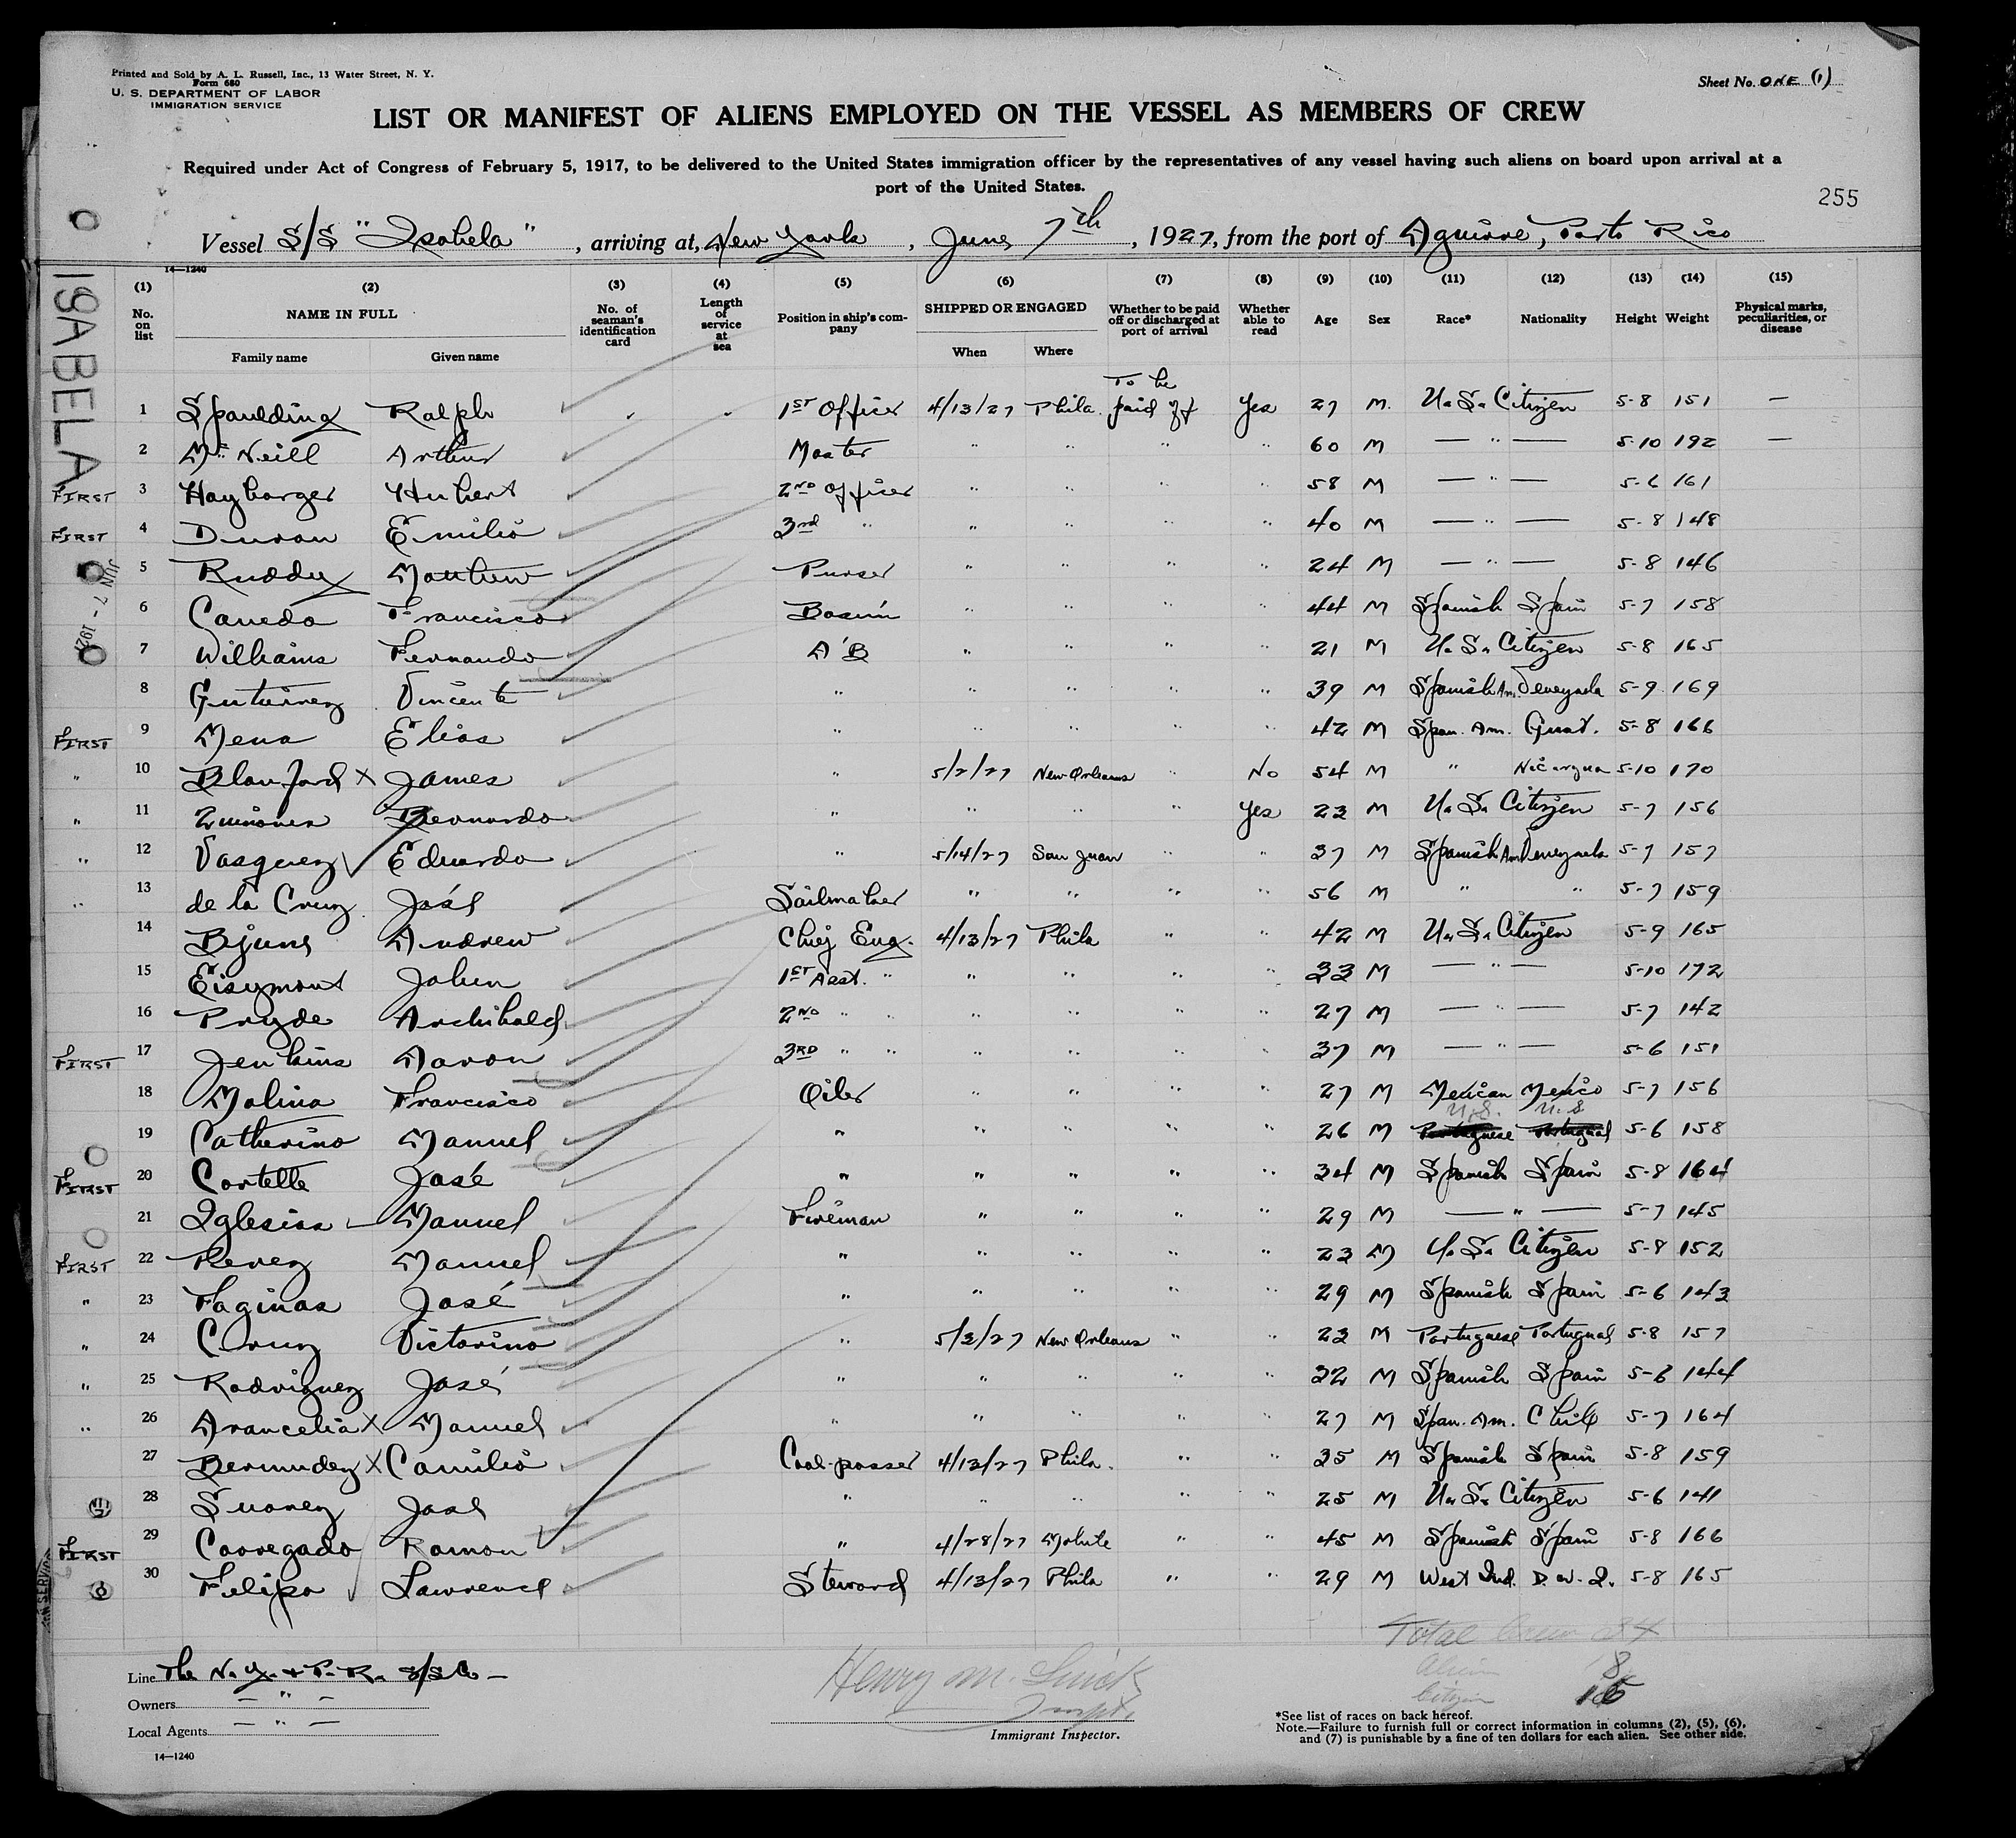 Printed and Sold by A. L. Russell, Inc., 13 Water Street, N. Y.
Form 680
U. S. DEPARTMENT OF LABOR
IMMIGRATION SERVICE
Sheet No. ONE (1)
LIST OR MANIFEST OF ALIENS EMPLOYED ON THE VESSEL AS MEMBERS OF CREW
Required under Act of Congress of February 5, 1917, to be delivered to the United States immigration officer by the representatives of any vessel having such aliens on board upon arrival at a
port of the United States.
255
Vessel S/S "Isabela", arriving at, New York, June 7th, 1927, from the port of Aguirre, Porto Rico
ISABELA
14—1240
(1) (2) (3) (4) (5) (6) (7) (8) (9) (10) (11) (12) (13) (14) (15)
No. on list NAME IN FULL Family name Given name No. of seaman's identification card Length of service at sea Position in ship's company SHIPPED OR ENGAGED When Where Whether to be paid off or discharged at port of arrival Whether able to read Age Sex Race* Nationality Height Weight Physical marks, peculiarities, or disease
1 Spaulding Ralph 1st Officer 4/13/27 Phila. To be paid off Yes 27 M. U.S. Citizen 5-8 151 —
2 McNeill Arthur Master " " " " 60 M — " — 5-10 192 —
FIRST 3 Haybarger Hubert 2nd Officer " " " " 58 M — " — 5-6 161
FIRST 4 Duran Emilio 3rd " " " " " 40 M — " — 5-8 148
5 Ruddy Matthew Purser " " " " 24 M — " — 5-8 146
JUN 7 - 1927
6 Caneda Francisco Bosun " " " " 44 M Spanish Spain 5-7 158
7 Williams Fernando AB " " " " 21 M U.S. Citizen 5-8 165
8 Gutierrez Vincente " " " " " 39 M Spanish Am. Venezuela 5-9 169
FIRST 9 Mena Elias " " " " " 42 M Span. Am. Guat. 5-8 166
" 10 Blanford X James " 5/2/27 New Orleans " No 54 M " Nicaragua 5-10 170
" 11 Quinones Bernardo " " " " Yes 23 M U.S. Citizen 5-7 156
" 12 Vasquez Eduardo " 5/14/27 San Juan " " 37 M Spanish Am Venezuela 5-7 157
" 13 de la Cruz José Sailmaker " " " " 56 M " " 5-7 159
14 Bjuns Andrew Chief Eng. 4/13/27 Phila " " 42 M U.S. Citizen 5-9 165
15 Eisymont John 1st Asst. " " " " " 33 M — " — 5-10 172
16 Pryde Archibald 2nd " " " " " " 27 M — " — 5-7 142
FIRST 17 Jenkins Aaron 3rd " " " " " " 37 M — " — 5-6 151
18 Molina Francisco Oiler " " " " 27 M Mexican Mexico 5-7 156
U.S. U.S
19 Catherino Manuel " " " " " 26 M Portuguese Portugal 5-6 158
FIRST 20 Cortelle José " " " " " 34 M Spanish Spain 5-8 164
21 Iglesias Manuel Fireman " " " " 29 M — " — 5-7 145
FIRST 22 Perez Manuel " " " " " 23 M U.S. Citizen 5-8 152
" 23 Faginas José " " " " " 29 M Spanish Spain 5-6 143
" 24 Cruz Victorino " 5/3/27 New Orleans " " 23 M Portuguese Portugal 5-8 157
" 25 Rodriguez José " " " " " 32 M Spanish Spain 5-6 144
" 26 Arancelia X Manuel " " " " " 27 M Span. Am. Chile 5-7 164
27 Bermudez X Camilio Coal-passer 4/13/27 Phila. " " 35 M Spanish Spain 5-8 159
28 Suarez José " " " " " 25 M U.S. Citizen 5-6 141
FIRST 29 Carregado Ramon " 4/28/27 Mobile " " 45 M Spanish Spain 5-8 166
30 Felipo Lawrence Steward 4/13/27 Phila " " 29 M West Ind. D.W.I. 5-8 165
Total Crew 34
Alien 18
Citizen 16
Line The N.Y. & P.R. S/S Co —
Owners — " —
Local Agents — " —
14—1240
Henry M.
Inspt.
Immigrant Inspector.
*See list of races on back hereof.
Note.—Failure to furnish full or correct information in columns (2), (5), (6),
and (7) is punishable by a fine of ten dollars for each alien. See other side.